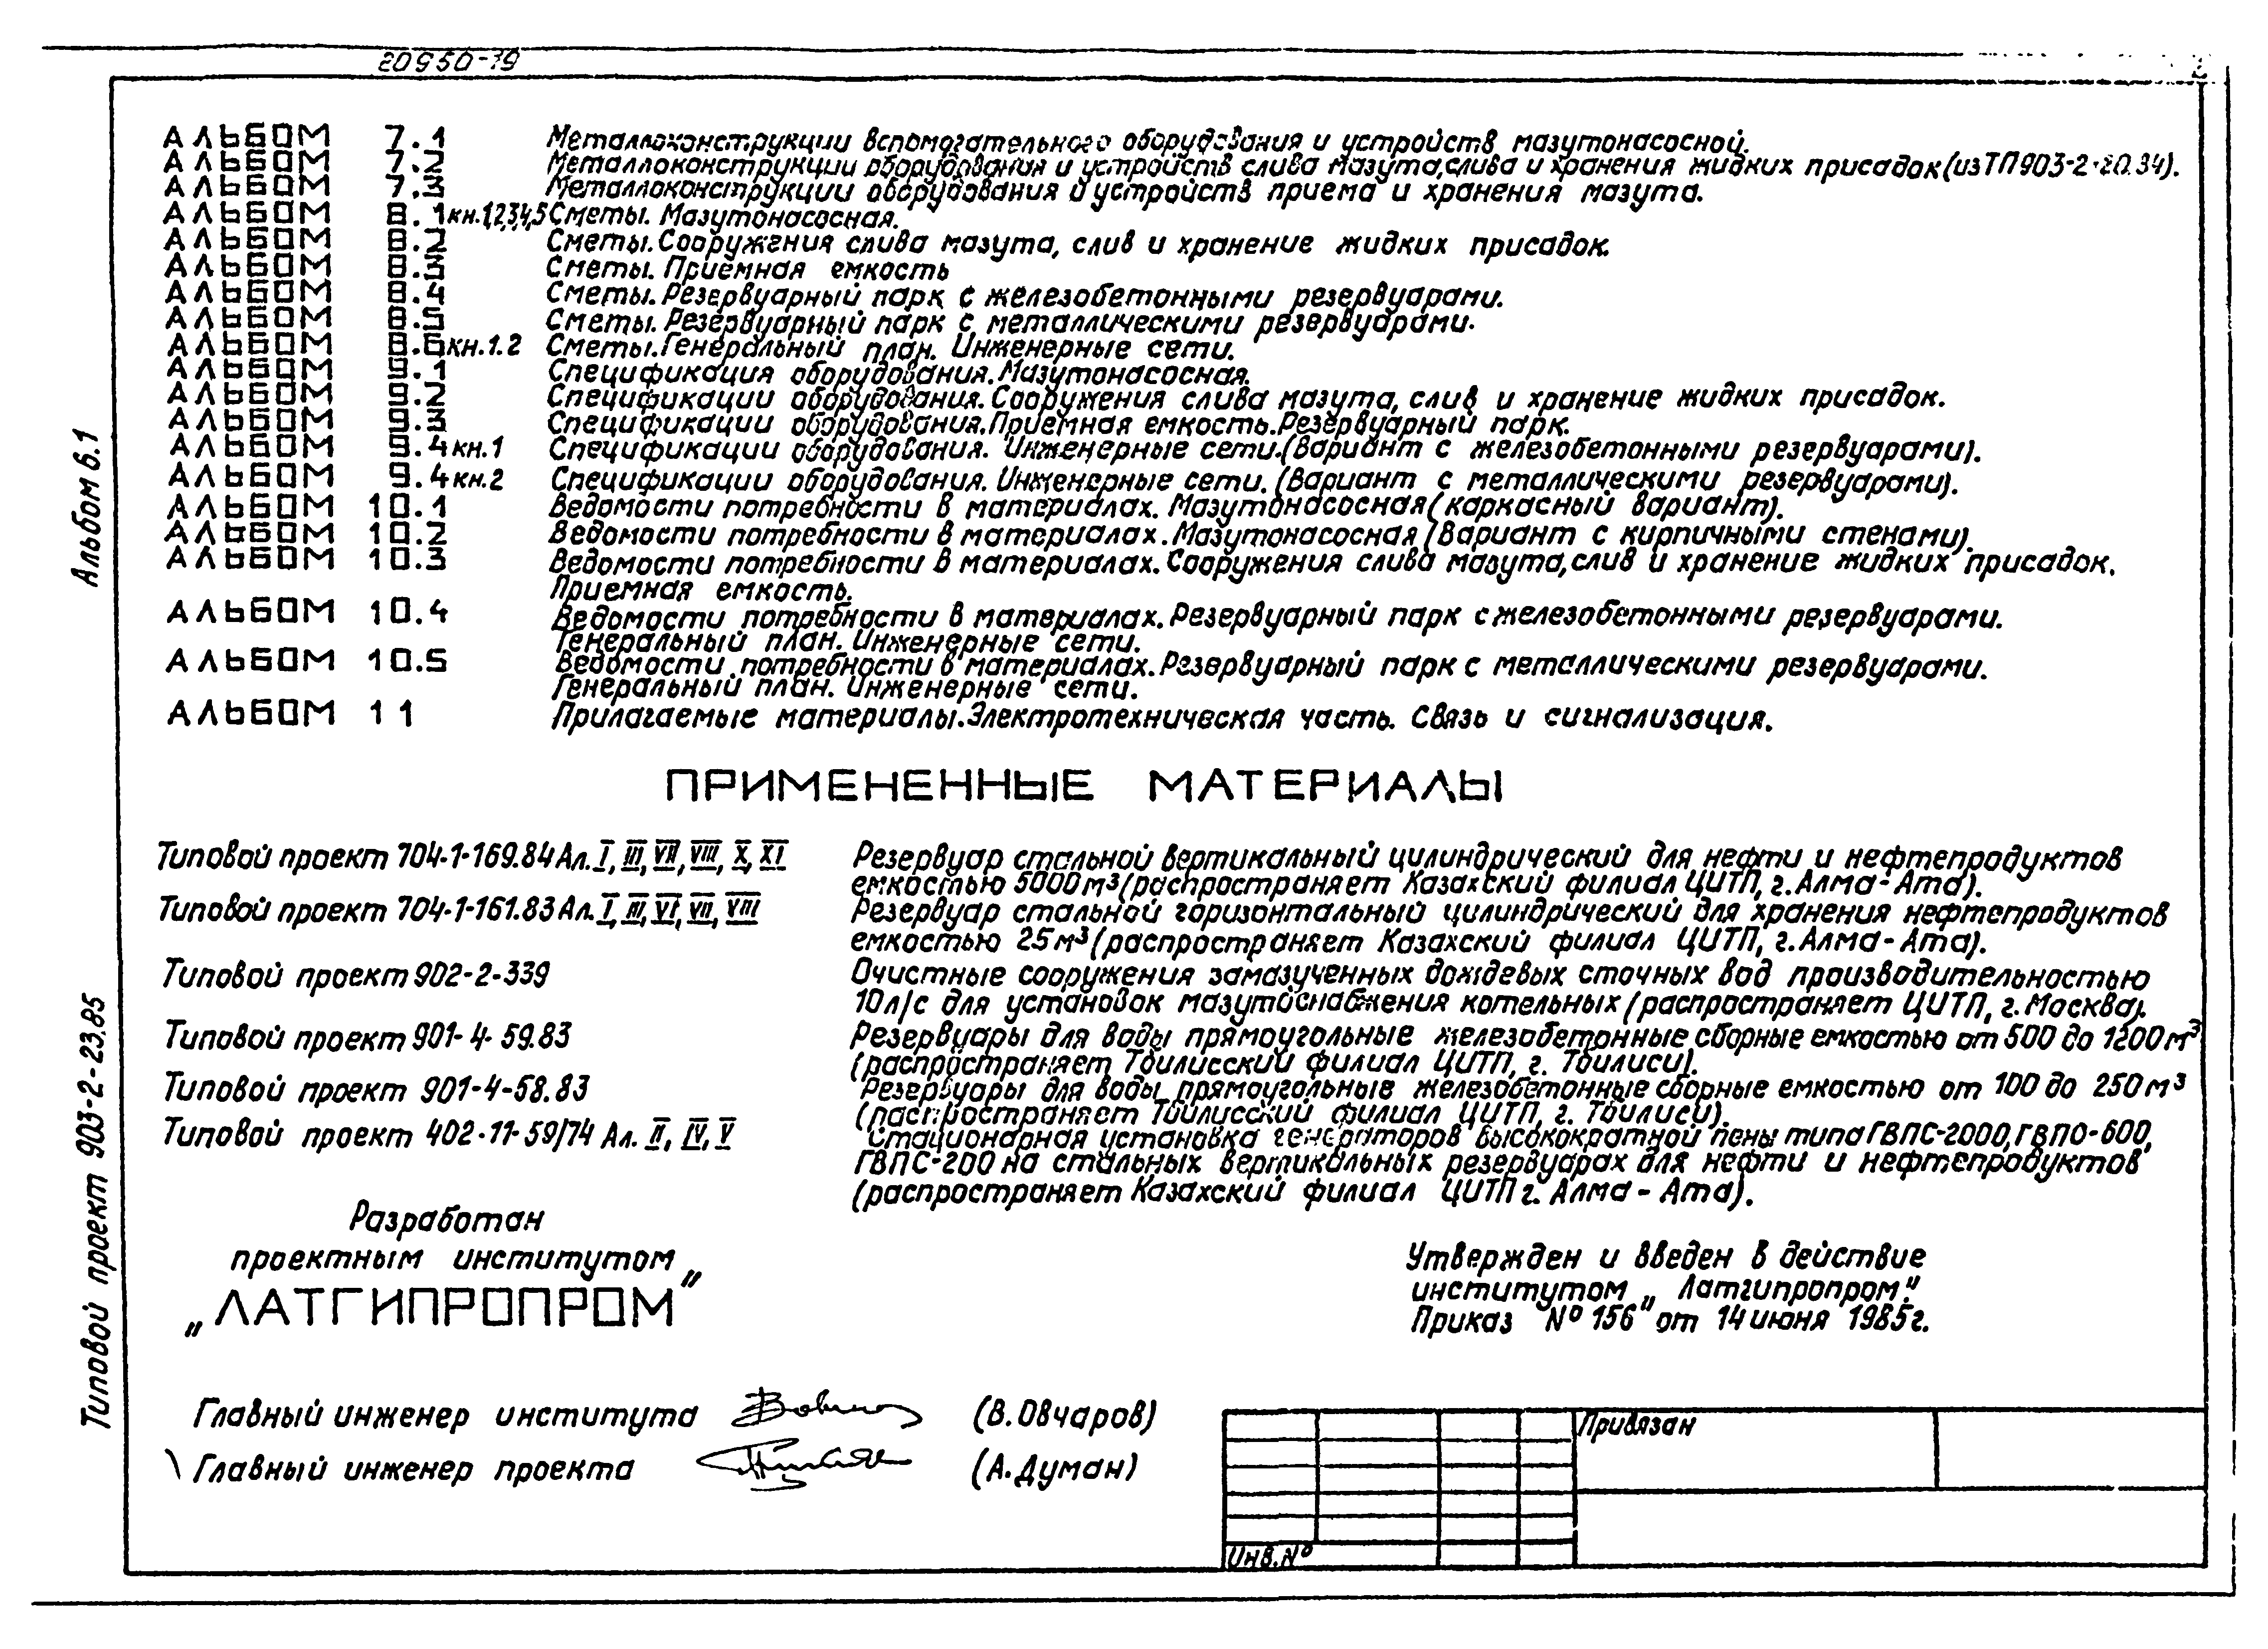 20950-19
2
АЛЬБОМ 7.1 Металлоконструкции вспомогательного оборудования и устройств мазутонасосной.
АЛЬБОМ 7.2 Металлоконструкции оборудования и устройств слива мазута, слива и хранения жидких присадок (из ТП 903-2-20.34).
АЛЬБОМ 7.3 Металлоконструкции оборудования и устройств приема и хранения мазута.
АЛЬБОМ 8.1 кн.1,2,3,4,5 Сметы. Мазутонасосная.
АЛЬБОМ 8.2 Сметы. Сооружения слива мазута, слив и хранение жидких присадок.
АЛЬБОМ 8.3 Сметы. Приемная емкость
АЛЬБОМ 8.4 Сметы. Резервуарный парк с железобетонными резервуарами.
АЛЬБОМ 8.5 Сметы. Резервуарный парк с металлическими резервуарами.
АЛЬБОМ 8.6 кн.1.2 Сметы. Генеральный план. Инженерные сети.
АЛЬБОМ 9.1 Спецификация оборудования. Мазутонасосная.
АЛЬБОМ 9.2 Спецификации оборудования. Сооружения слива мазута, слив и хранение жидких присадок.
АЛЬБОМ 9.3 Спецификации оборудования. Приемная емкость. Резервуарный парк.
АЛЬБОМ 9.4 кн.1 Спецификации оборудования. Инженерные сети. (Вариант с железобетонными резервуарами).
АЛЬБОМ 9.4 кн.2 Спецификации оборудования. Инженерные сети. (Вариант с металлическими резервуарами).
АЛЬБОМ 10.1 Ведомости потребности в материалах. Мазутонасосная (каркасный вариант).
АЛЬБОМ 10.2 Ведомости потребности в материалах. Мазутонасосная (Вариант с кирпичными стенами).
АЛЬБОМ 10.3 Ведомости потребности в материалах. Сооружения слива мазута, слив и хранение жидких присадок.
Приемная емкость.
АЛЬБОМ 10.4 Ведомости потребности в материалах. Резервуарный парк с железобетонными резервуарами.
Генеральный план. Инженерные сети.
АЛЬБОМ 10.5 Ведомости потребности в материалах. Резервуарный парк с металлическими резервуарами.
Генеральный план. Инженерные сети.
АЛЬБОМ 11 Прилагаемые материалы. Электротехническая часть. Связь и сигнализация.
Альбом 6.1
ПРИМЕНЕННЫЕ МАТЕРИАЛЫ
Типовой проект 704-1-169.84 Ал. I, III, VII, VIII, X, XI Резервуар стальной вертикальный цилиндрический для нефти и нефтепродуктов
емкостью 5000 м³ (распространяет Казахский филиал ЦИТП, г. Алма-Ата).
Типовой проект 704-1-161.83 Ал. I, III, VI, VII, VIII Резервуар стальной горизонтальный цилиндрический для хранения нефтепродуктов
емкостью 25 м³ (распространяет Казахский филиал ЦИТП, г. Алма-Ата).
Типовой проект 902-2-339 Очистные сооружения замазученных дождевых сточных вод производительностью
10 л/с для установок мазутоснабжения котельных (распространяет ЦИТП, г. Москва).
Типовой проект 901-4-59.83 Резервуары для воды прямоугольные железобетонные сборные емкостью от 500 до 1200 м³
(распространяет Тбилисский филиал ЦИТП, г. Тбилиси).
Типовой проект 901-4-58.83 Резервуары для воды прямоугольные железобетонные сборные емкостью от 100 до 250 м³
(распространяет Тбилисский филиал ЦИТП, г. Тбилиси).
Типовой проект 402-11-59/74 Ал. II, IV, V Стационарная установка генераторов высокократной пены типа ГВПС-2000, ГВПО-600,
ГВПС-200 на стальных вертикальных резервуарах для нефти и нефтепродуктов
(распространяет Казахский филиал ЦИТП г. Алма-Ата).
Типовой проект 903-2-23.85
Разработан
проектным институтом
„ЛАТГИПРОПРОМ"
Утвержден и введен в действие
институтом „Латгипропром."
Приказ №156 от 14 июня 1985г.
Главный инженер института (В. Овчаров)
Главный инженер проекта (А. Думан)
Привязан
Инв. №